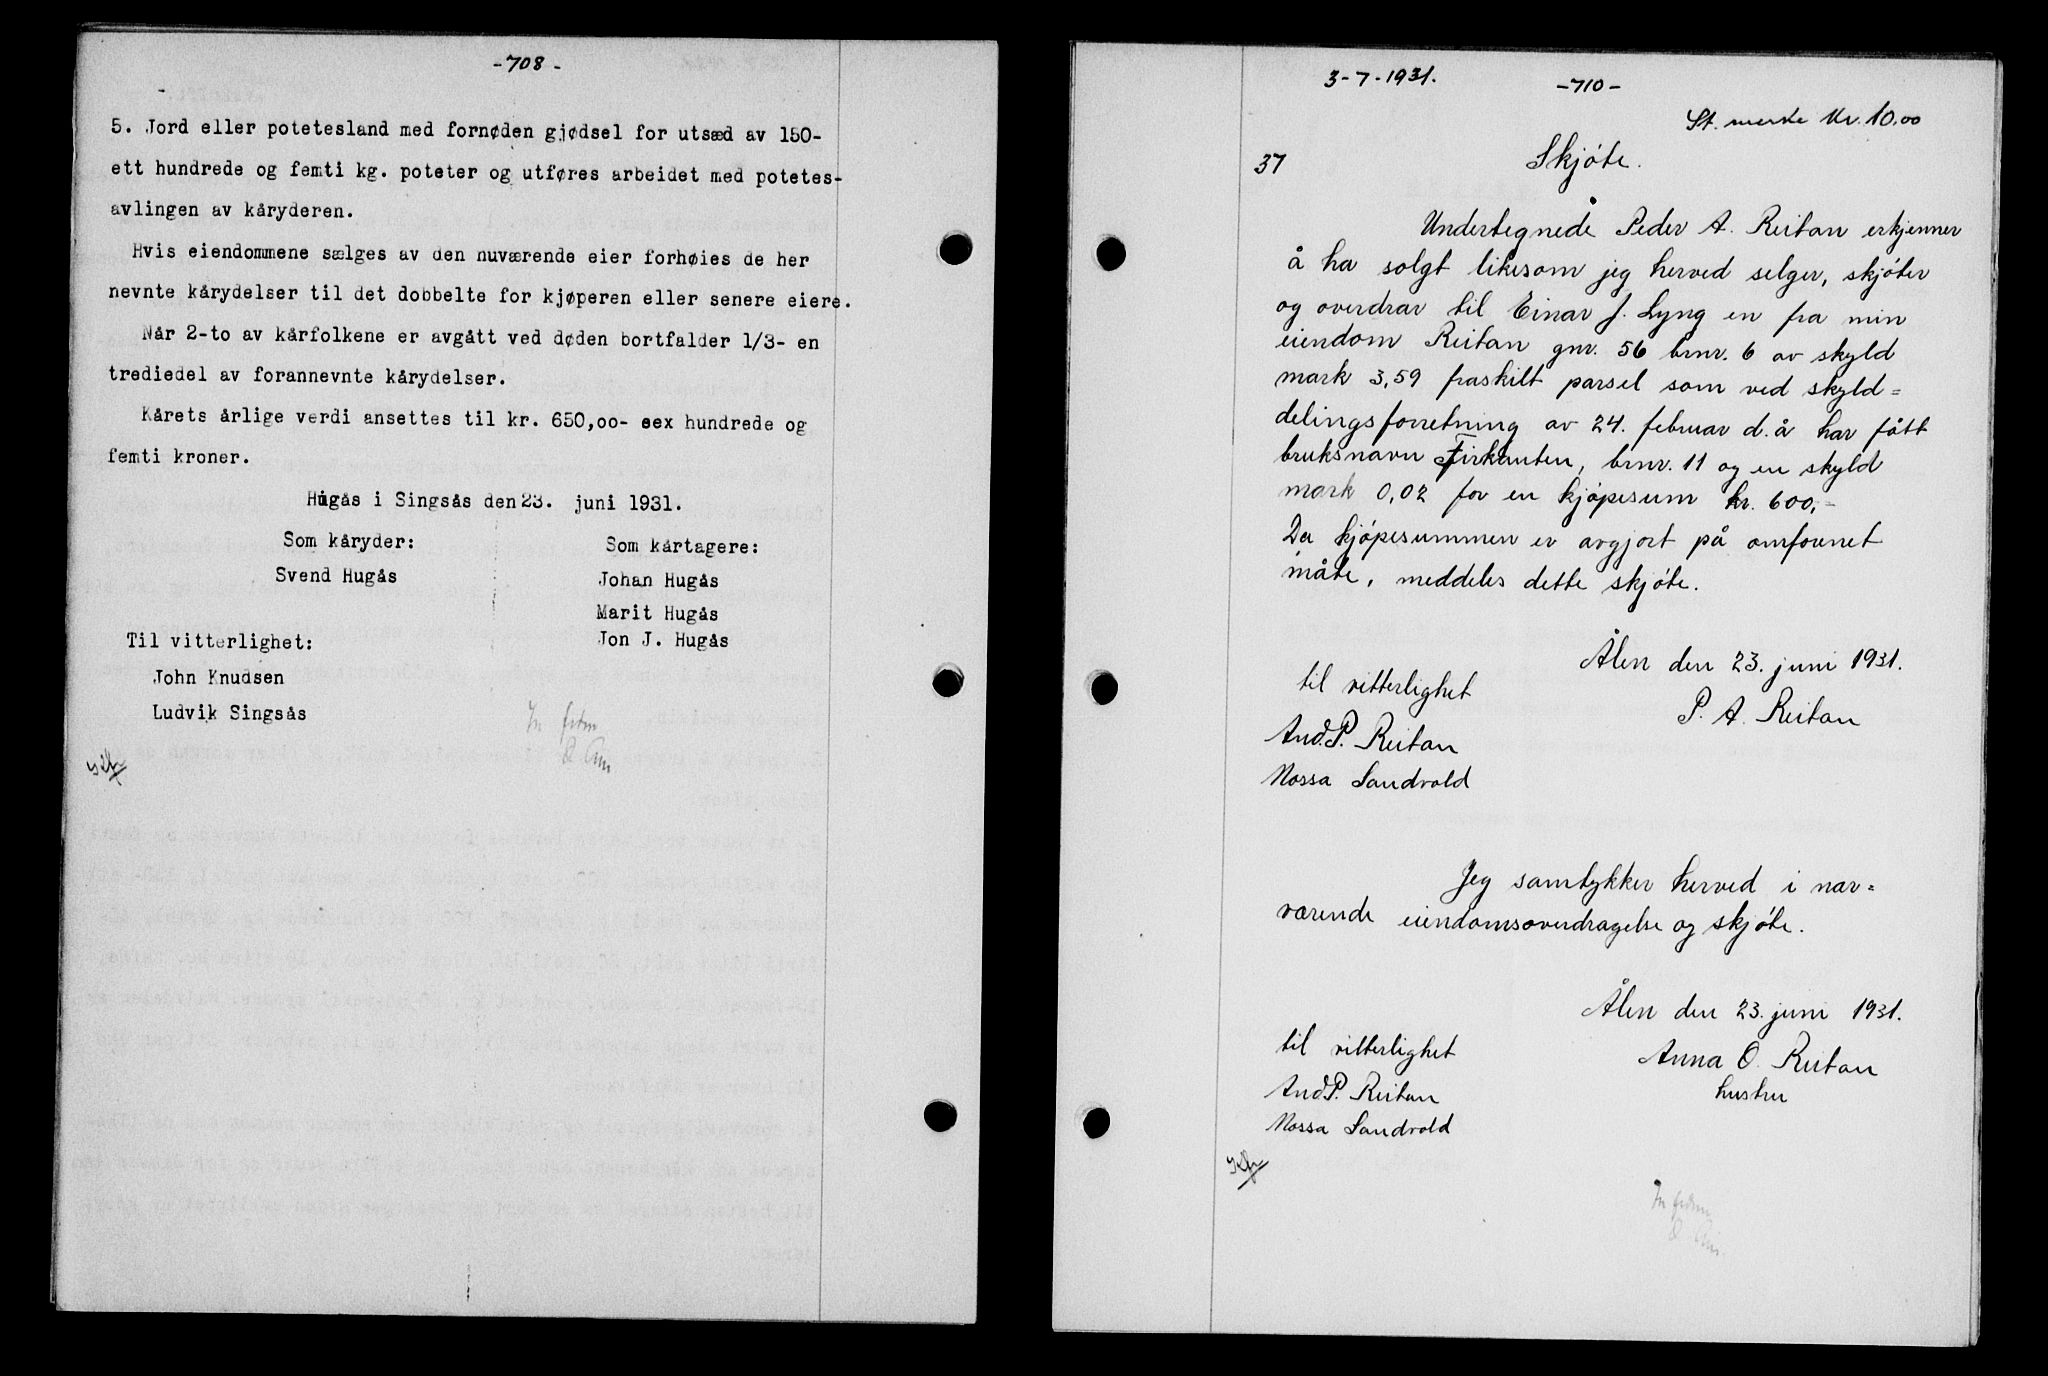 -708-
5. Jord eller potetesland med fornøden gjødsel for utsæd av 150-
ett hundrede og femti kg. poteter og utføres arbeidet med potetes-
avlingen av kåryderen.
Hvis eiendommene sælges av den nuværende eier forhøies de her
nevnte kårydelser til det dobbelte for kjøperen eller senere eiere.
Når 2-to av kårfolkene er avgått ved døden bortfalder 1/3- en
trediedel av forannevnte kårydelser.
Kårets årlige verdi ansettes til kr. 650,oo- sex hundrede og
femti kroner.
Hugås i Singsås den 23. juni 1931.
Som kåryder:
Svend Hugås
Som kårtagere:
Johan Hugås
Marit Hugås
Jon J. Hugås
Til vitterlighet:
John Knudsen
Ludvik Singsås
3-7-1931.
-710-
St. merke Kr. 10.00
37
Skjøte.
Undertegnede Peder A. Reitan erkjenner
å ha solgt likesom jeg herved selger, skjøter
og overdrar til Einar J. Lyng en fra min
eiendom Reitan gnr. 56 brnr. 6 av skyld
mark 3,59 fraskilt parsel som ved skyld=
delingsforretning av 24. februar d.å har fått
bruksnavn Firkanten, brnr. 11 og en skyld
mark 0,02 for en kjøpesum kr. 600,-
Da kjøpesummen er avgjort på omforenet
måte, meddeles dette skjøte.
Ålen den 23. juni 1931.
P. A. Reitan
til vitterlighet
And. P. Reitan
Massa Sandvold
Jeg samtykker herved i nær=
værende eiendomsoverdragelse og skjøte.
Ålen den 23. juni 1931.
Anna O. Reitan
hustru
til vitterlighet
And. P. Reitan
Massa Sandvold